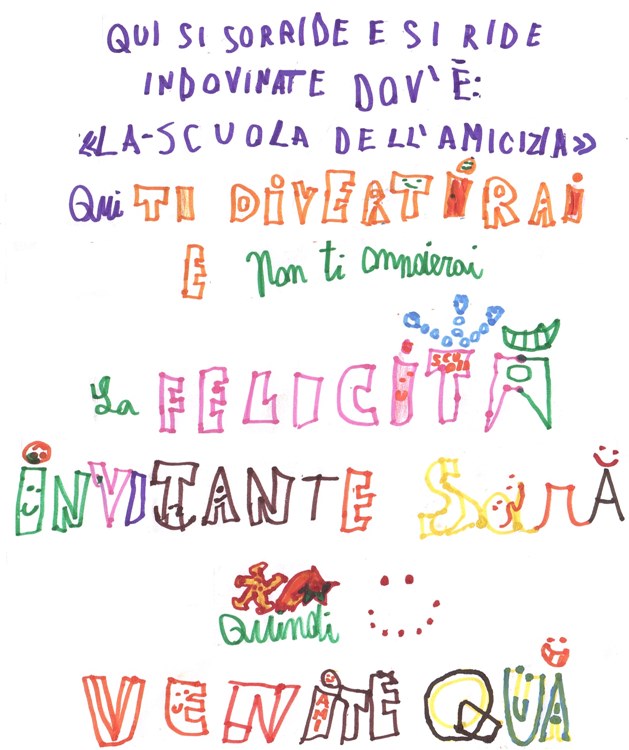 QUI SI SORRIDE E SI RIDE
INDOVINATE DOV'È:
«LA-SCUOLA DELL'AMICIZIA»
Qui TI DIVERTIRAI
E Non ti annoierai
La FELICITÀ
INVITANTE SaràÀ
Quindi
VENITE QUÀ